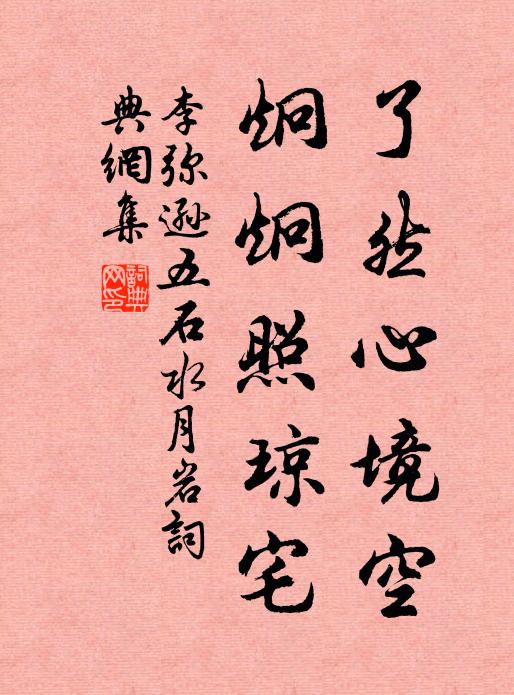 了然心境空
炯炯照琼宅
李弥遜五石水月岩詞
典網集
詞典网印